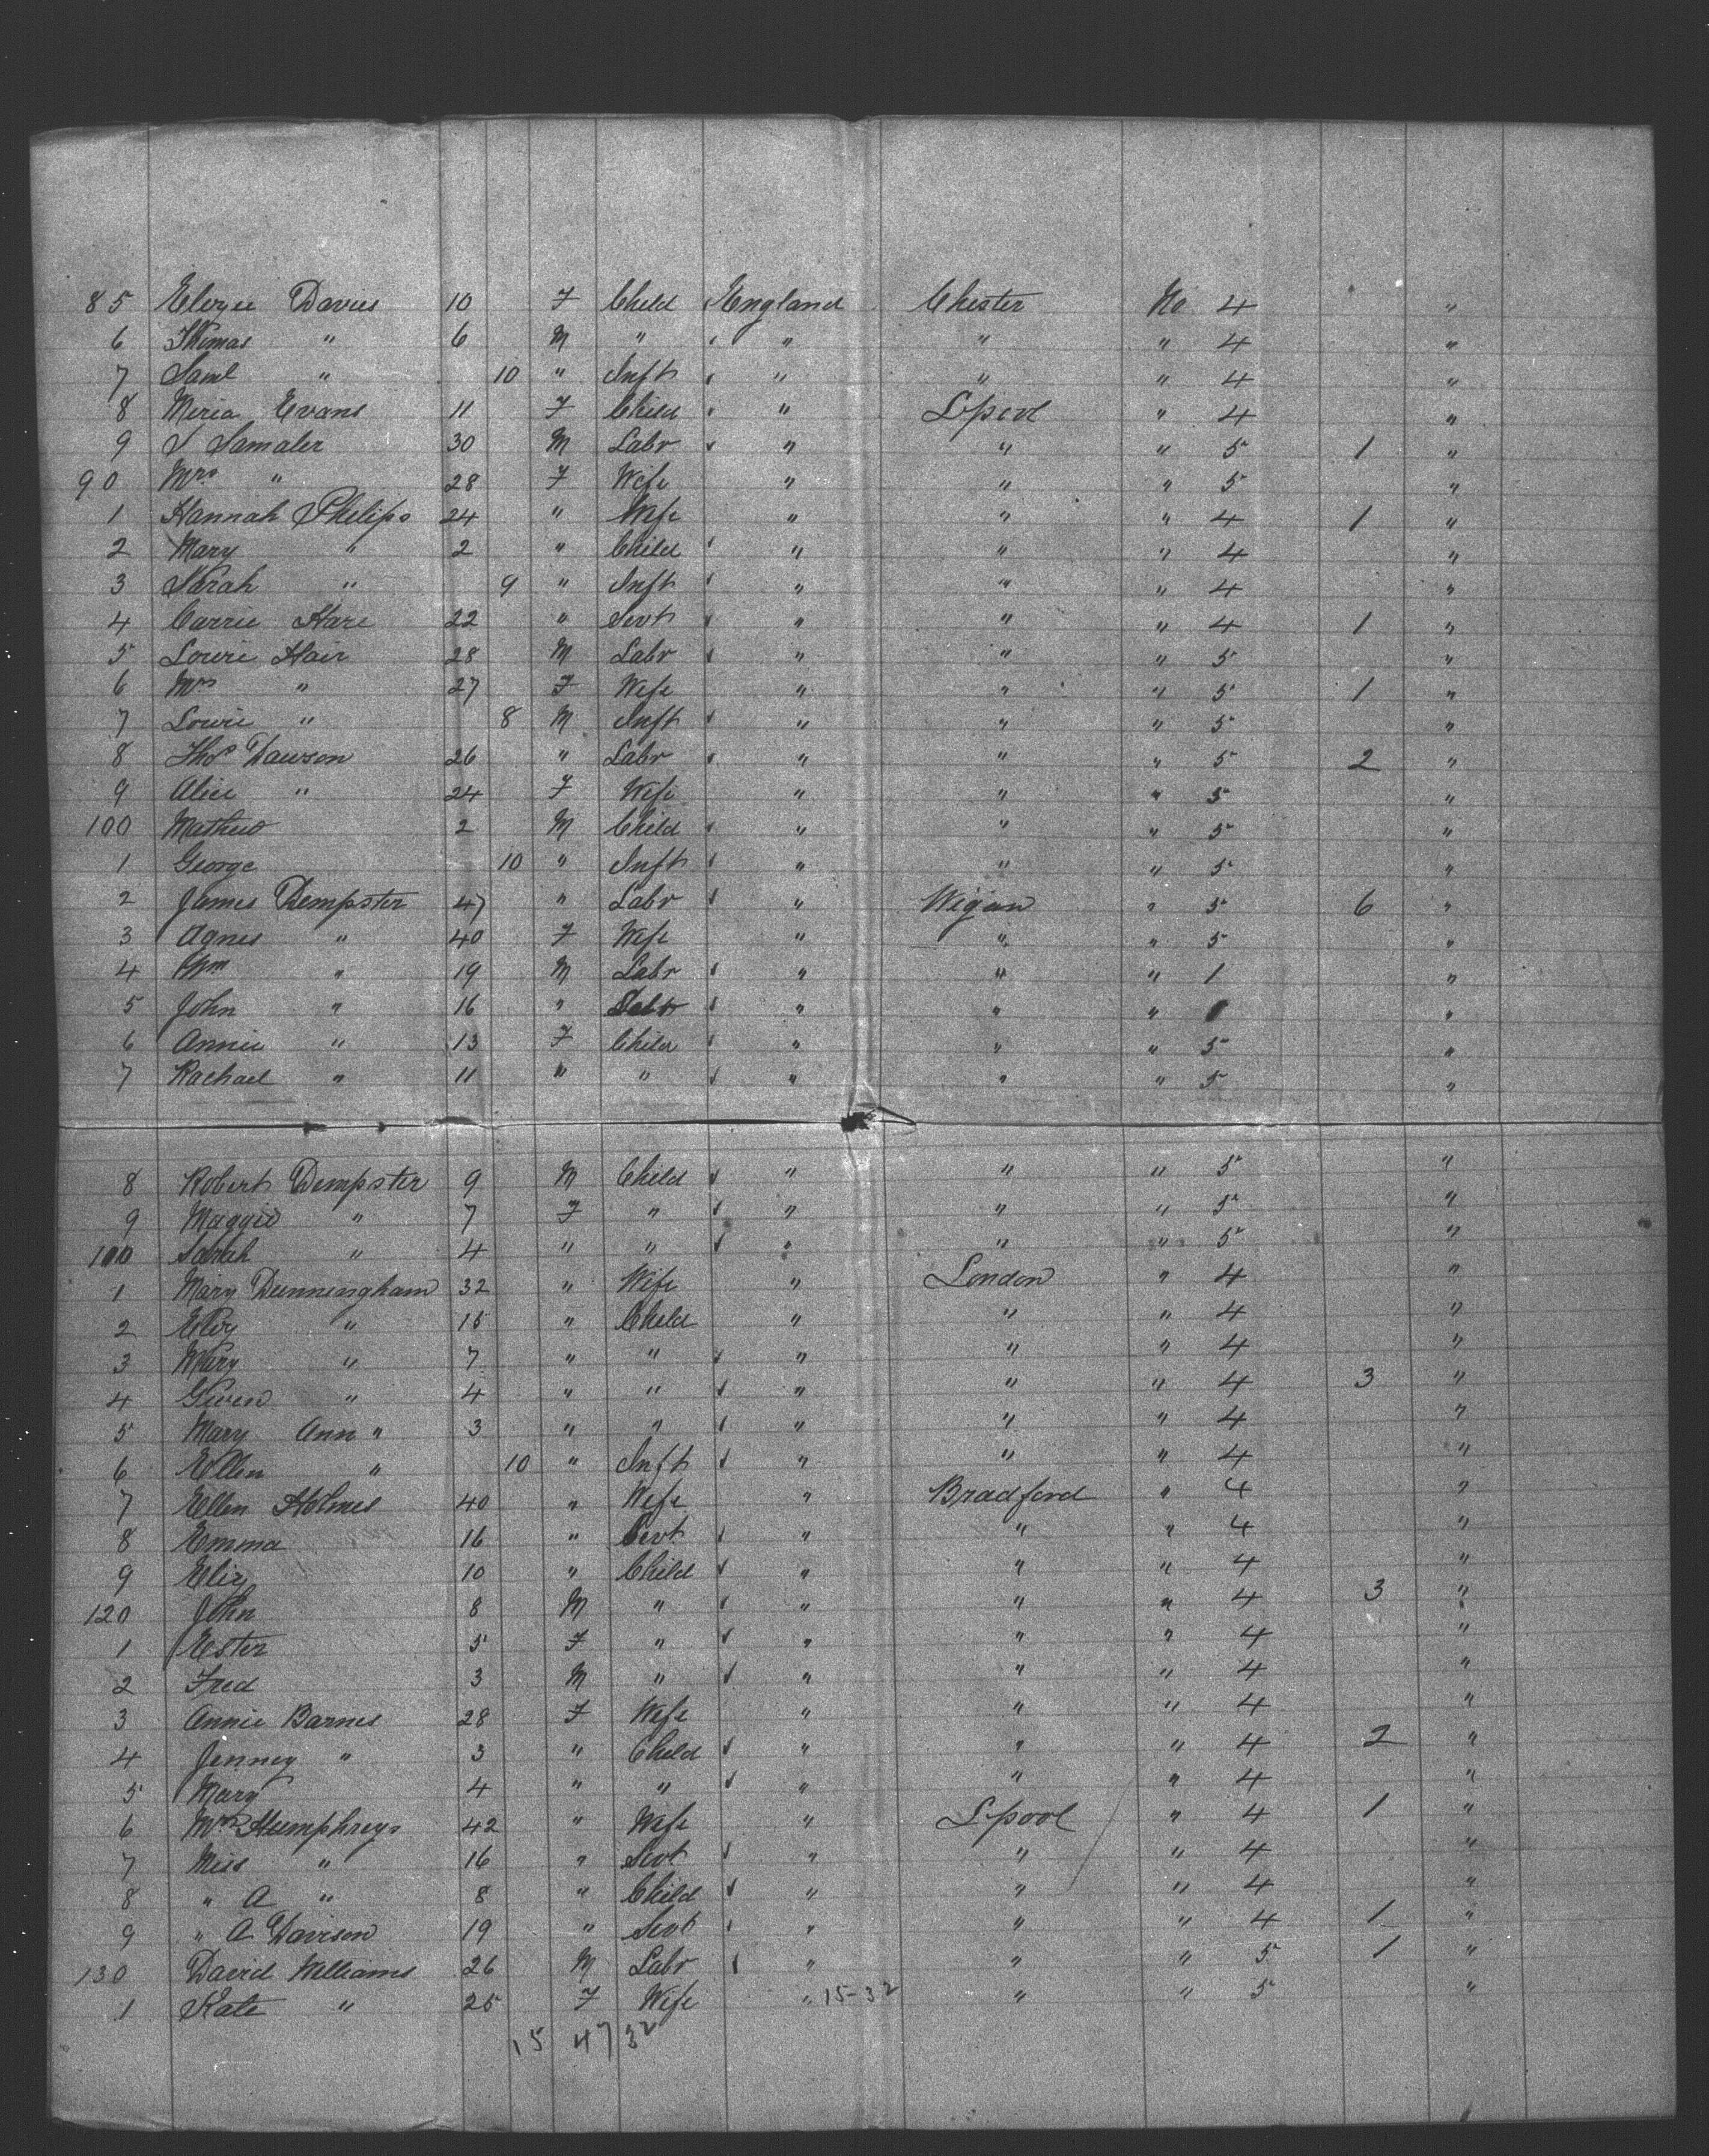 85 Elizie Davies 10 F Child England Chester No 4 "
6 Thomas " 6 M " " " " 4 "
7 Saml " 10 " Inft " " " 4 "
8 Meria Evans 11 F Child " Lpool " 4 "
9 S Samaler 30 M Labr " " " 5 1 "
90 Mrs " 28 F Wife " " " 5 "
1 Hannah Philips 24 " Wife " " " 4 1 "
2 Mary " 2 " Child " " " 4 "
3 Sarah " 9 " Inft " " " 4 "
4 Carrie Hare 22 " Servt " " " 4 1 "
5 Lowie Hair 28 M Labr " " " 5 "
6 Mrs " 27 F Wife " " " 5 1 "
7 Lowie " 8 M Inft " " " 5 "
8 Thos Dawson 26 " Labr " " " 5 2 "
9 Alice " 24 F Wife " " " 5 "
100 Mathew 2 M Child " " " 5 "
1 George 10 " Inft " " " 5 "
2 James Dempster 47 " Labr " Wigan " 5 6 "
3 Agnes " 40 F Wife " " " 5 "
4 Wm " 19 M Labr " " " 1 "
5 John " 16 " Labr " " " 1 "
6 Annie " 13 F Child " " " 5 "
7 Rachael " 11 " " " " " 5 "
8 Robert Dempster 9 M Child " " " 5 "
9 Maggie " 7 F " " " " 5 "
100 Sarah " 4 " " " " " 5 "
1 Mary Dunningham 32 " Wife " London " 4 "
2 Eliz " 15 " Child " " " 4 "
3 Mary " 7 " " " " " 4 "
4 Gwen " 4 " " " " " 4 3 "
5 Mary Ann " 3 " " " " " 4 "
6 Ellen " 10 " Inft " " " 4 "
7 Ellen Holmes 40 " Wife " Bradford " 4 "
8 Emma 16 " Servt " " " 4 "
9 Eliz 10 " Child " " " 4 "
120 John 8 M " " " " 4 3 "
1 Ester 5 F " " " " 4 "
2 Fred 3 M " " " " 4 "
3 Annie Barnes 28 F Wife " " " 4 "
4 Jenney " 3 " Child " " " 4 2 "
5 Mary 4 " " " " " 4 "
6 Mrs Humphreys 42 " Wife " Lpool " 4 1 "
7 Miss " 16 " Servt " " " 4 "
8 " A " 8 " Child " " " 4 "
9 " A Davison 19 " Servt " " " 4 1 "
130 David Williams 26 M Labr " " " 5 1 "
1 Kate " 25 F Wife " 15-32 " " 5 "
15 47 32